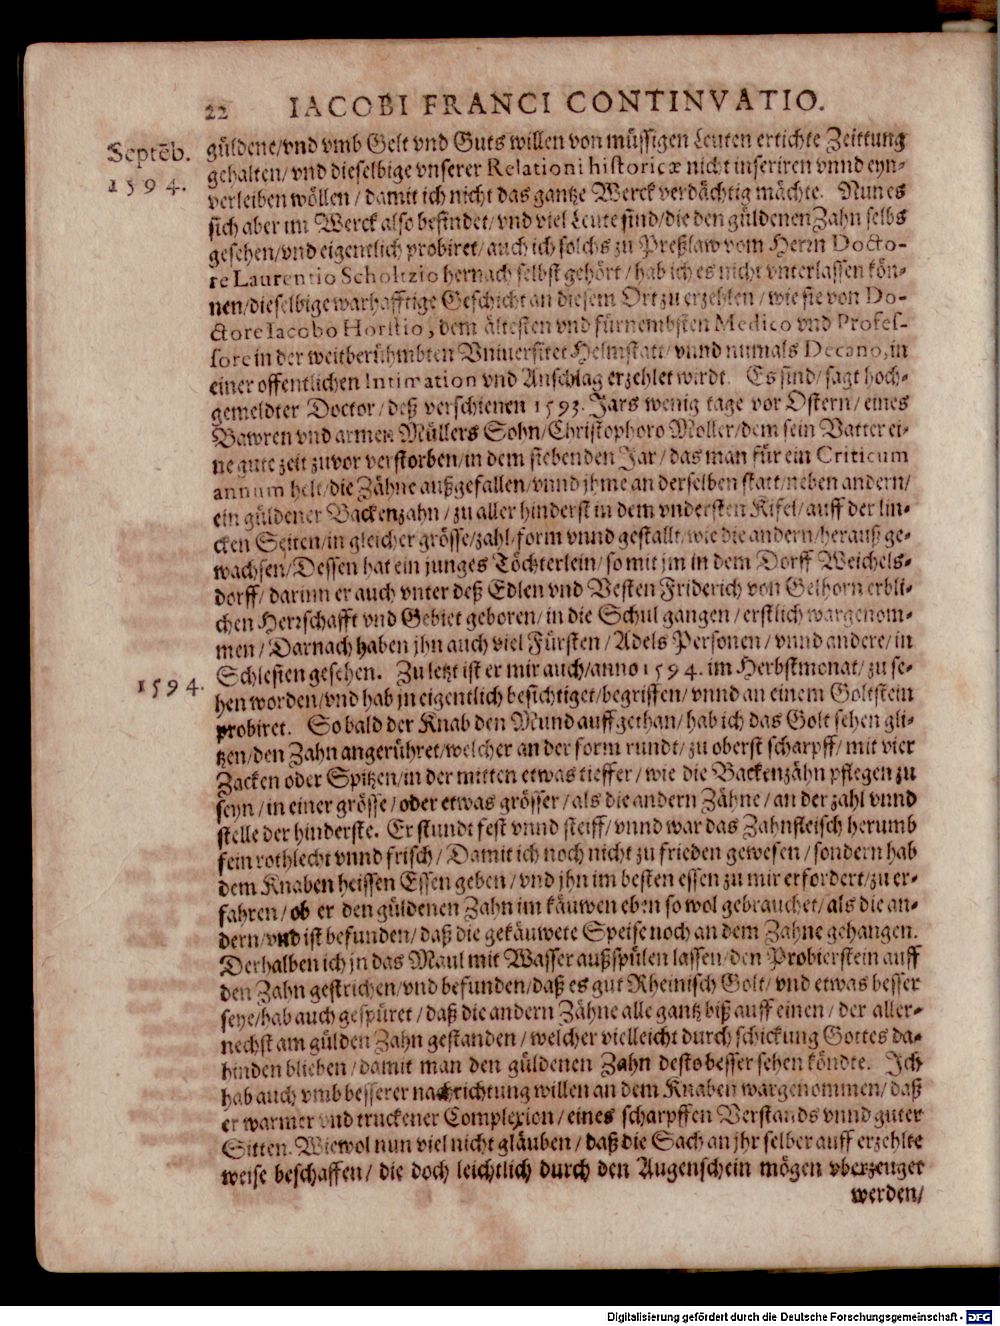 22 IACOBI FRANCI CONTINVATIO.
Septēb.
1594.
güldene/vnd vmb Gelt vnd Guts willen von müssigen Leuten ertichte Zeittung
gehalten/ vnd dieselbige vnserer Relationi historicæ nicht inseriren vnnd eyn-
verleiben wöllen / damit ich nicht das gantze Werck verdächtig mächte. Nun es
sich aber im Werck also befindet/ vnd viel Leute sind/die den güldenen Zahn selbs
gesehen/vnd eigentlich probiret/ auch ich solchs zu Preßlaw vom Herrn Docto-
re Laurentio Scholtzio hernach selbst gehört / hab ich es nicht vnterlassen kön-
nen/dieselbige warhafftige Geschicht an diesem Ort zu erzehlen / wie sie von Do-
ctore Iacobo Horstio, dem ältesten vnd fürnembsten Medico vnd Profes-
sore in der weitberühmbten Vniuersitet Helmstatt/ vnnd numals Decano, in
einer offentlichen Intimation vnd Anschlag erzehlet wirdt. Es sind/ sagt hoch-
gemeldter Doctor / deß verschienen 1593. Jars wenig tage vor Ostern / eines
Bawren vnd armen Müllers Sohn/Christophoro Moller/dem sein Vatter ei-
ne gute zeit zuvor verstorben/in dem siebenden Jar / das man für ein Criticum
annum helt/die Zähne außgefallen/vnnd jhme an derselben statt/neben andern/
ein güldener Backenzahn / zu aller hinderst in dem vndersten Kifel/ auff der lin-
cken Seiten/in gleicher grösse/zahl/form vnnd gestallt/wie die andern/herauß ge-
wachsen/Dessen hat ein junges Töchterlein/so mit jm in dem Dorff Weichels-
dorff/ darinn er auch vnter deß Edlen vnd Vesten Friderich von Gelhorn erbli-
chen Herrschafft vnd Gebiet geboren/ in die Schul gangen / erstlich wargenom-
men / Darnach haben jhn auch viel Fürsten / Adels Personen / vnnd andere/ in
Schlesien gesehen. Zu letzt ist er mir auch/anno 1594. im Herbstmonat/ zu se-
1594.
hen worden/vnd hab jn eigentlich besichtiget/begriffen/ vnnd an einem Goltstein
probiret. So bald der Knab den Mund auffgethan/ hab ich das Golt sehen gli-
tzen/den Zahn angerühret/welcher an der form rundt/ zu oberst scharpff/ mit vier
Zacken oder Spitzen/in der mitten etwas tieffer / wie die Backenzähn pflegen zu
seyn / in einer grösse / oder etwas grösser / als die andern Zähne / an der zahl vnnd
stelle der hinderste. Er stundt fest vnnd steiff/ vnnd war das Zahnfleisch herumb
fein rothlecht vnnd frisch / Damit ich noch nicht zu frieden gewesen / sondern hab
dem Knaben heissen Essen geben / vnd jhn im besten essen zu mir erfordert/zu er-
fahren / ob er den güldenen Zahn im käuwen eben so wol gebrauchet/ als die an-
dern/vnd ist befunden/ daß die gekäuwete Speise noch an dem Zahne gehangen.
Derhalben ich jn das Maul mit Wasser außspülen lassen/den Probierstein auff
den Zahn gestrichen/vnd befunden/daß es gut Rheinisch Golt/ vnd etwas besser
seye/hab auch gespüret / daß die andern Zähne alle gantz biß auff einen / der aller-
nechst am gülden Zahn gestanden / welcher vielleicht durch schickung Gottes da-
hinden blieben / damit man den güldenen Zahn desto besser sehen köndte. Ich
hab auch vmb besserer nachrichtung willen an dem Knaben wargenommen/ daß
er warmer vnd truckener Complexion / eines scharpffen Verstands vnnd guter
Sitten. Wiewol nun viel nicht gläuben / daß die Sach an jhr selber auff erzehlte
weise beschaffen / die doch leichtlich durch den Augenschein mögen vberzeuget
werden/
Digitalisierung gefördert durch die Deutsche Forschungsgemeinschaft - DFG